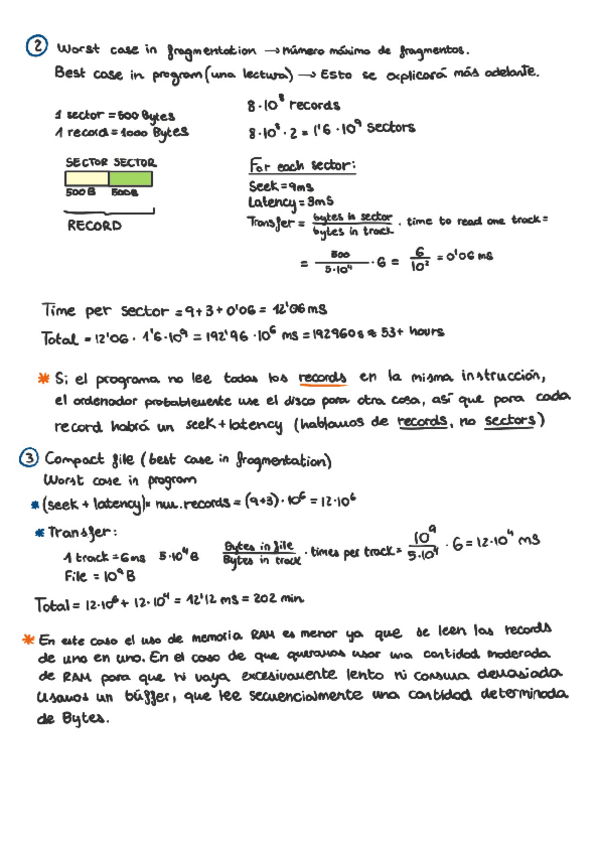 2 Worst case in fragmentation → número máximo de fragmentos.
Best case in program (una lectura) → Esto se explicará más adelante.
1 sector = 500 Bytes
1 record = 1000 Bytes
8·10⁸ records
8·10⁸·2 = 1'6·10⁹ sectors
SECTOR SECTOR
500B 500B
RECORD
For each sector:
Seek = 9ms
Latency = 3ms
Transfer = bytes in sector / bytes in track · time to read one track =
= 500 / 5·10⁴ · 6 = 6 / 10² = 0'06 ms
Time per sector = 9+3+0'06 = 12'06 ms
Total = 12'06 · 1'6·10⁹ = 192'96·10⁶ ms = 192960s ≈ 53+ hours
* Si el programa no lee todas los records en la misma instrucción,
el ordenador probablemente use el disco para otra cosa, así que para cada
record habrá un seek+latency (hablamos de records, no sectors)
3 Compact file (best case in fragmentation)
Worst case in program
* (seek + latency) · num. records = (9+3)·10⁶ = 12·10⁶
* Transfer:
1 track = 6ms 5·10⁴ B
File = 10⁹ B
Bytes in file / Bytes in track · times per track = 10⁹ / 5·10⁴ · 6 = 12·10⁴ ms
Total = 12·10⁶ + 12·10⁴ = 12'12 ms = 202 min
* En este caso el uso de memoria RAM es menor ya que se leen las records
de uno en uno. En el caso de que queramos usar una cantidad moderada
de RAM para que ni vaya excesivamente lento ni consuma demasiada
usamos un búffer, que lee secuencialmente una cantidad determinada
de Bytes.